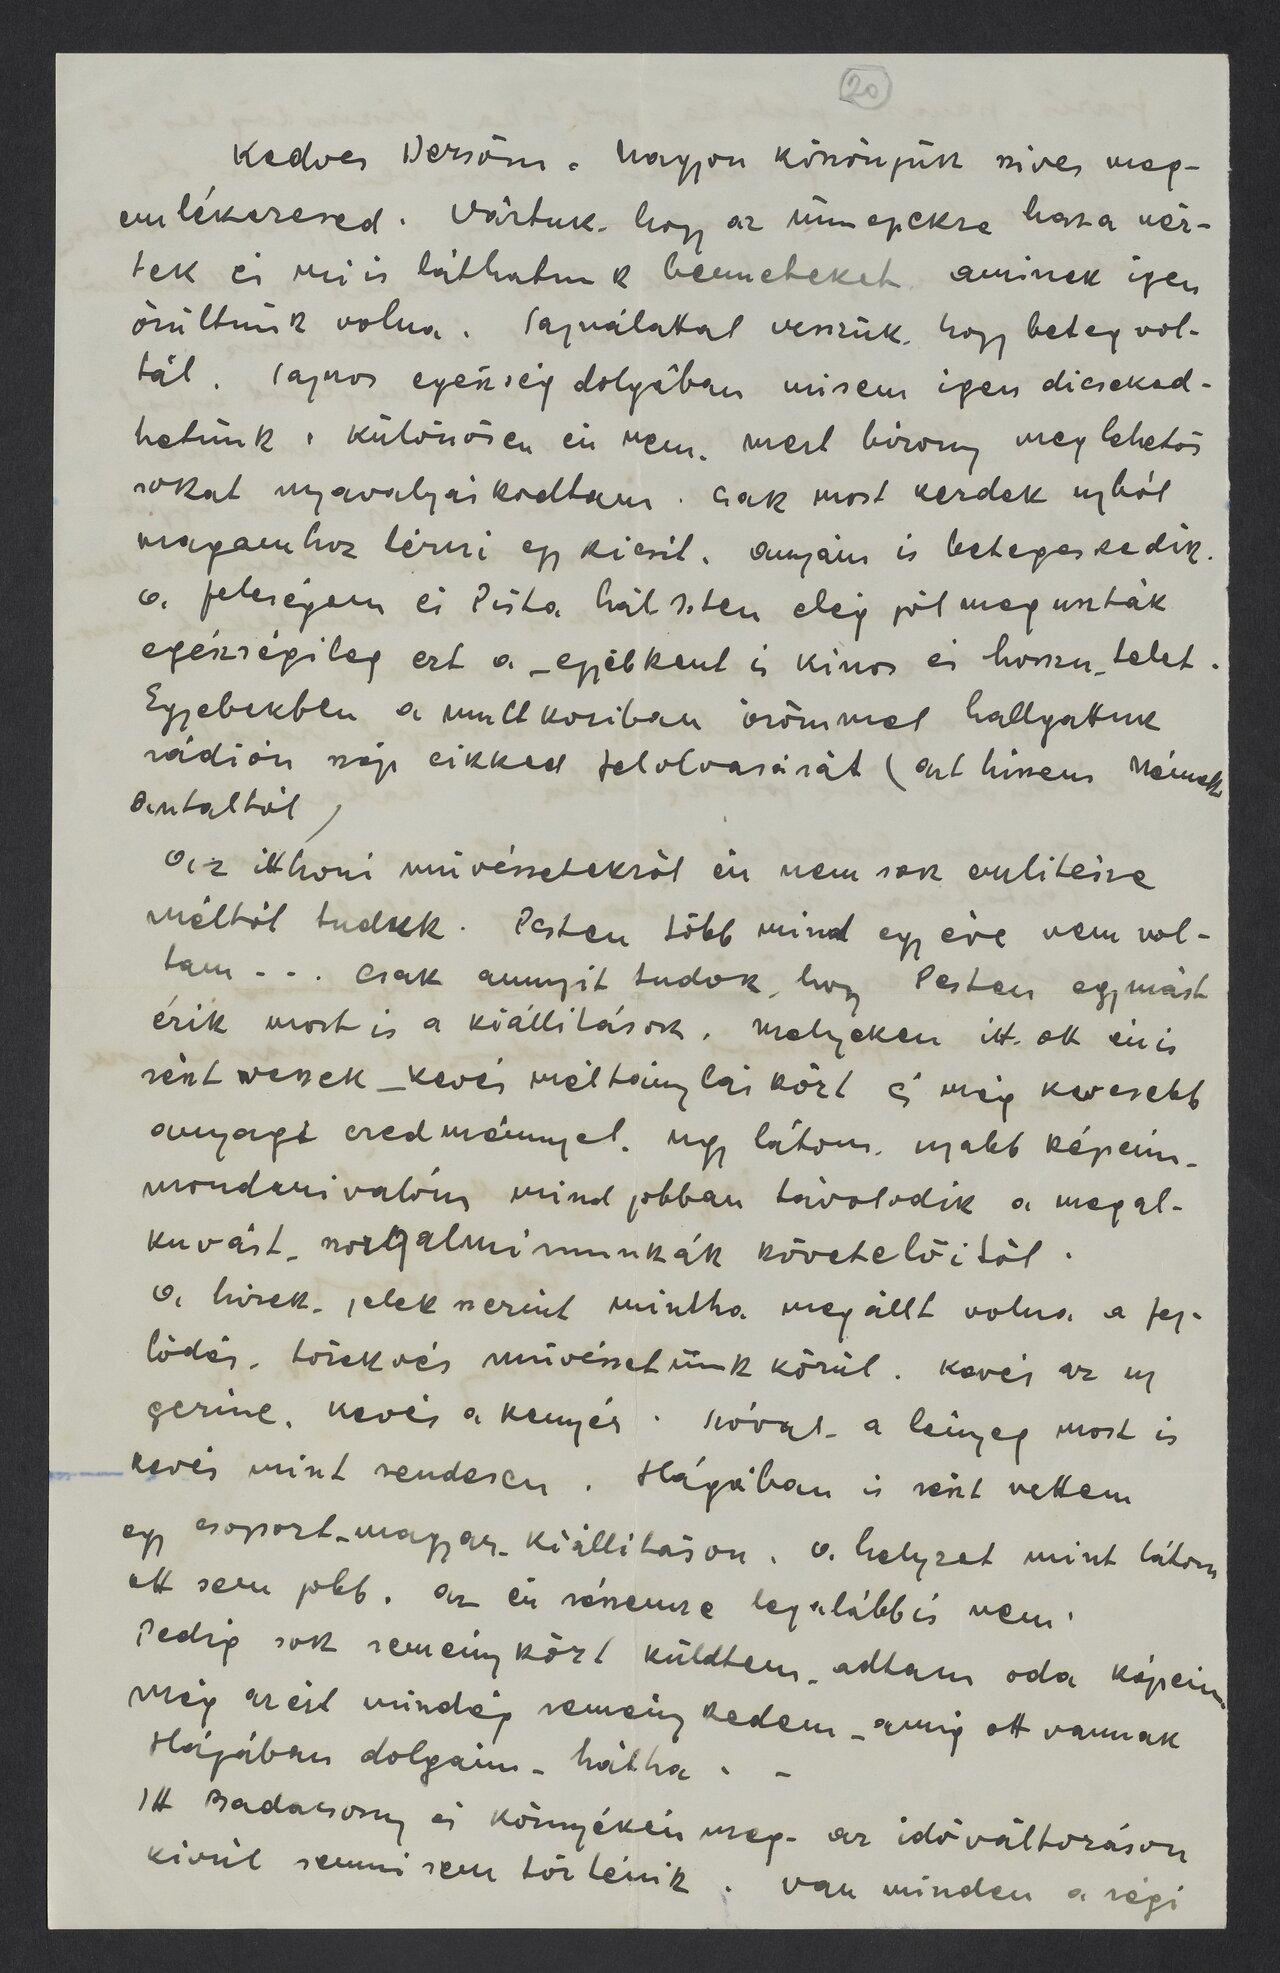 20
Kedves Dersöm. Nagyon köszönjük szives meg-
emlékezesed. Vártuk. hogy az ünnepekre haza néz-
tek és mi is láthatunk benneteket aminek igen
örültünk volna. Sajnálattal vesszük. hogy beteg vol-
tál. Sajnos egészség dolgában misem igen dicseked-
hetünk. különösen én nem. mert bizony meglehetős
sokat nyavalyáskodtam. csak most kezdek ujból
magamhoz térni egy kicsit. anyám is betegeskedik.
a feleségem és Pista hál isten elég jól megúszták
egészségileg ezt a _egyébként is kinos és hosszu_telet.
Egyebekben a multkoriban örömmel hallgattuk
rádión szép cikked felolvasását (azt hiszem Német
Antaltól)
Az itthoni művészetekről én nem sok emlitésre
méltót tudok. Pesten több mind egy éve nem vol-
tam - - . csak annyit tudok, hogy Pesten egymást
érik most is a kiállitások. melyeken itt. ott én is
részt veszek _kevés méltánylás közt és még kevesebb
anyagi eredménnyel. ugy látom. ujabb képeim-
mondanivalóm mind jobban távolodik a megal-
kuvást_ szorgalmi munkák követelőitől.
A hirek. jelek szerint mintha megállt volna a fej-
lődés. törekvés művészetünk körül. kevés az uj
gerinc. kevés a kenyér. szóval_ a lényeg most is
kevés mint rendesen. Hágában is részt vettem
egy csoport_magyar_kiállitáson. a helyzet mint látom
ott sem jobb. az én részemre legalábbis nem.
Pedig sok remény közt küldtem_ adtam oda képeim.
még azért mindég reménykedem_amig ott vannak
Hágában dolgaim_ hátha . -
Itt Badacsony és környékén meg- az időváltozáson
kivül semmi sem történik. van minden a régi